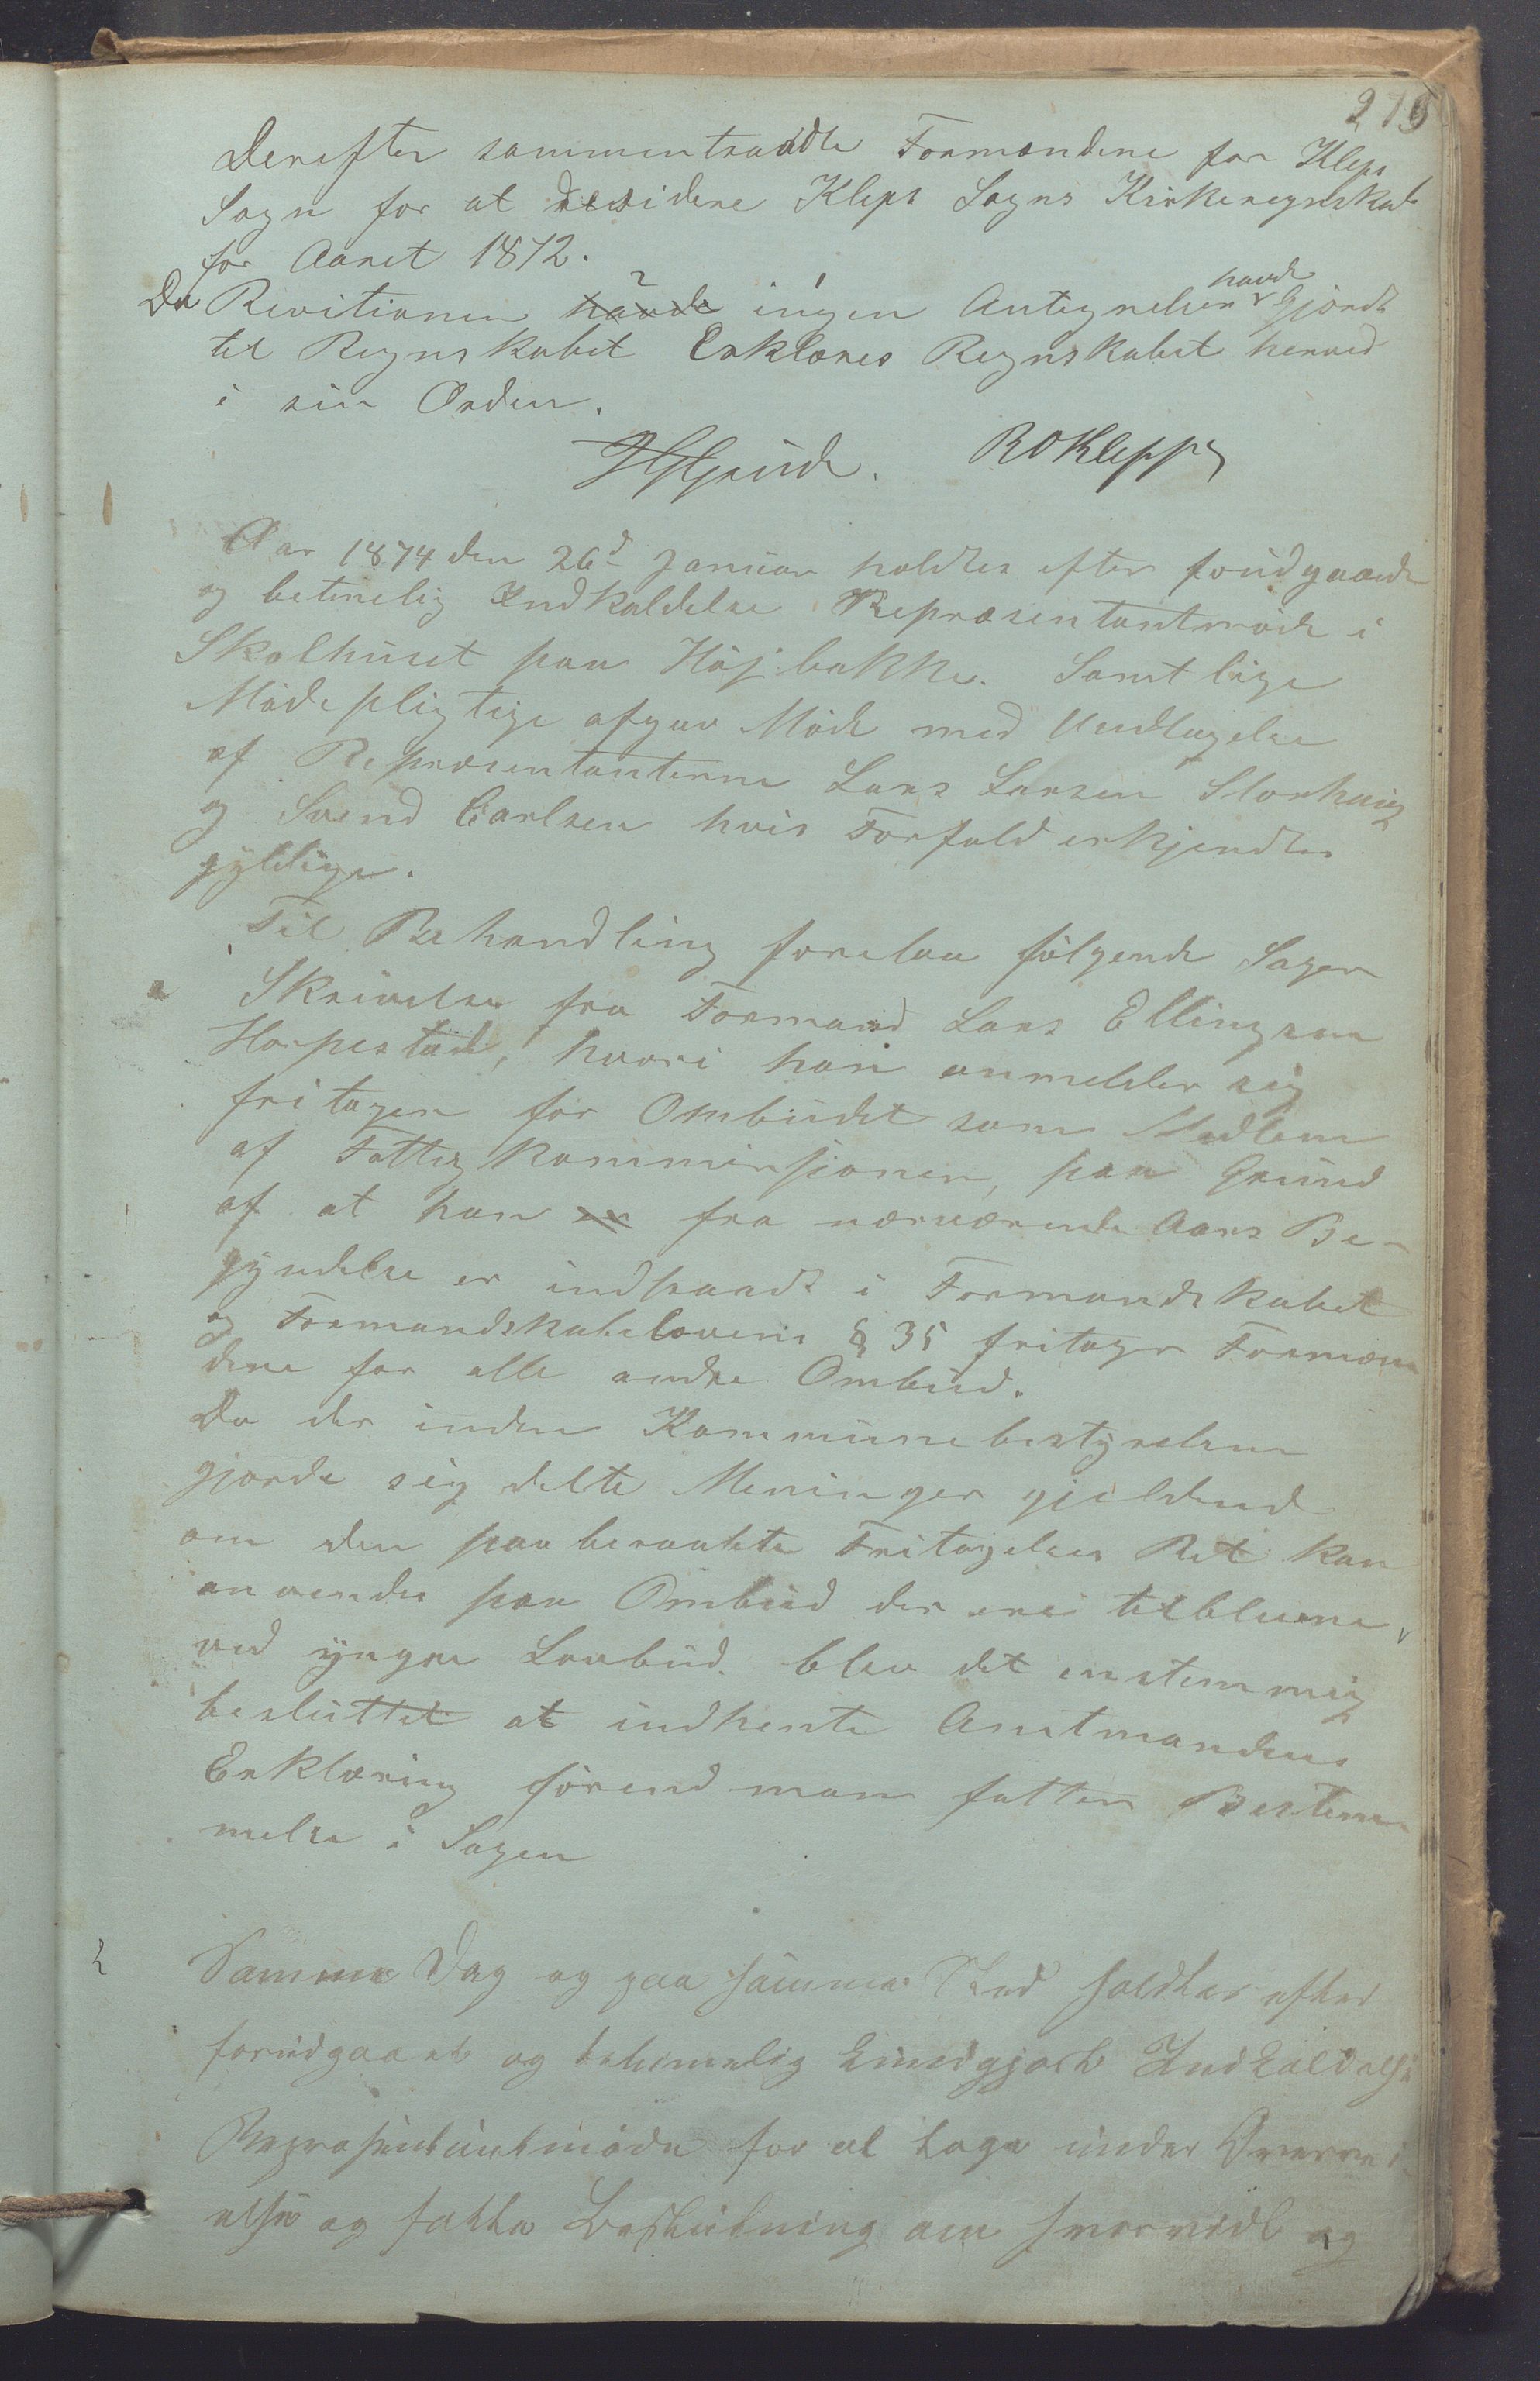 215
Derefter sammentraadte Formændene for Klep
Sogn for at desidere Kleps Sogns Kirkeregnskab
for Aaret 1872.
Da Revitionen havde ingen Antegnelser havde Gjordt
til Regnskabet Erklæres Regnskabet herved
i sin Orden.
ROKlepp
Aar 1874 den 26d Januar holdtes efter forudgaaende
og betimelig Indkaldelse Repræsentantmøde i
Skolhuset paa Højbakke. Samtlige
Mødepligtige afgav Møde med Undtagelse
af Repræsentanterne Lars Larsen Storhaug
og Svend Carlsen hvis Forfald erkjendtes
gyldige.
Til Behandling forelaa følgende Sager
a Skrivelse fra Formand Lars Ellingsen
Horpestad, hvori han anmelder sig
fritagen for Ombudet som Medlem
af Fattigkommissjonen, paa Grund
af at han er fra nærværende Aars Be-
gyndelse er indtraadt i Formandskabet
og Formandskabslovens § 35 fritager Formæn
dene for alle andre Ombud.
Da der inden Kommunebestyrelsen
gjorde sig delte Meninger gjeldend
om den paaberaabte Fritagelses Ret kan
anvendes paa Ombud der ere tilblevne
ved yngre Lovbud. blev det enstemmig
besluttet at indhente Amtmandens
Erklæring førend man fatter Bestem
melse i Sagen
2 Samme Dag og paa samme Sted holdtes efter
forudgaaet og betimelig kundgjort Indkaldelse
Repræsentantmøde for at tage under Overvei-
else og fatte Beslutning om hvorvidt og